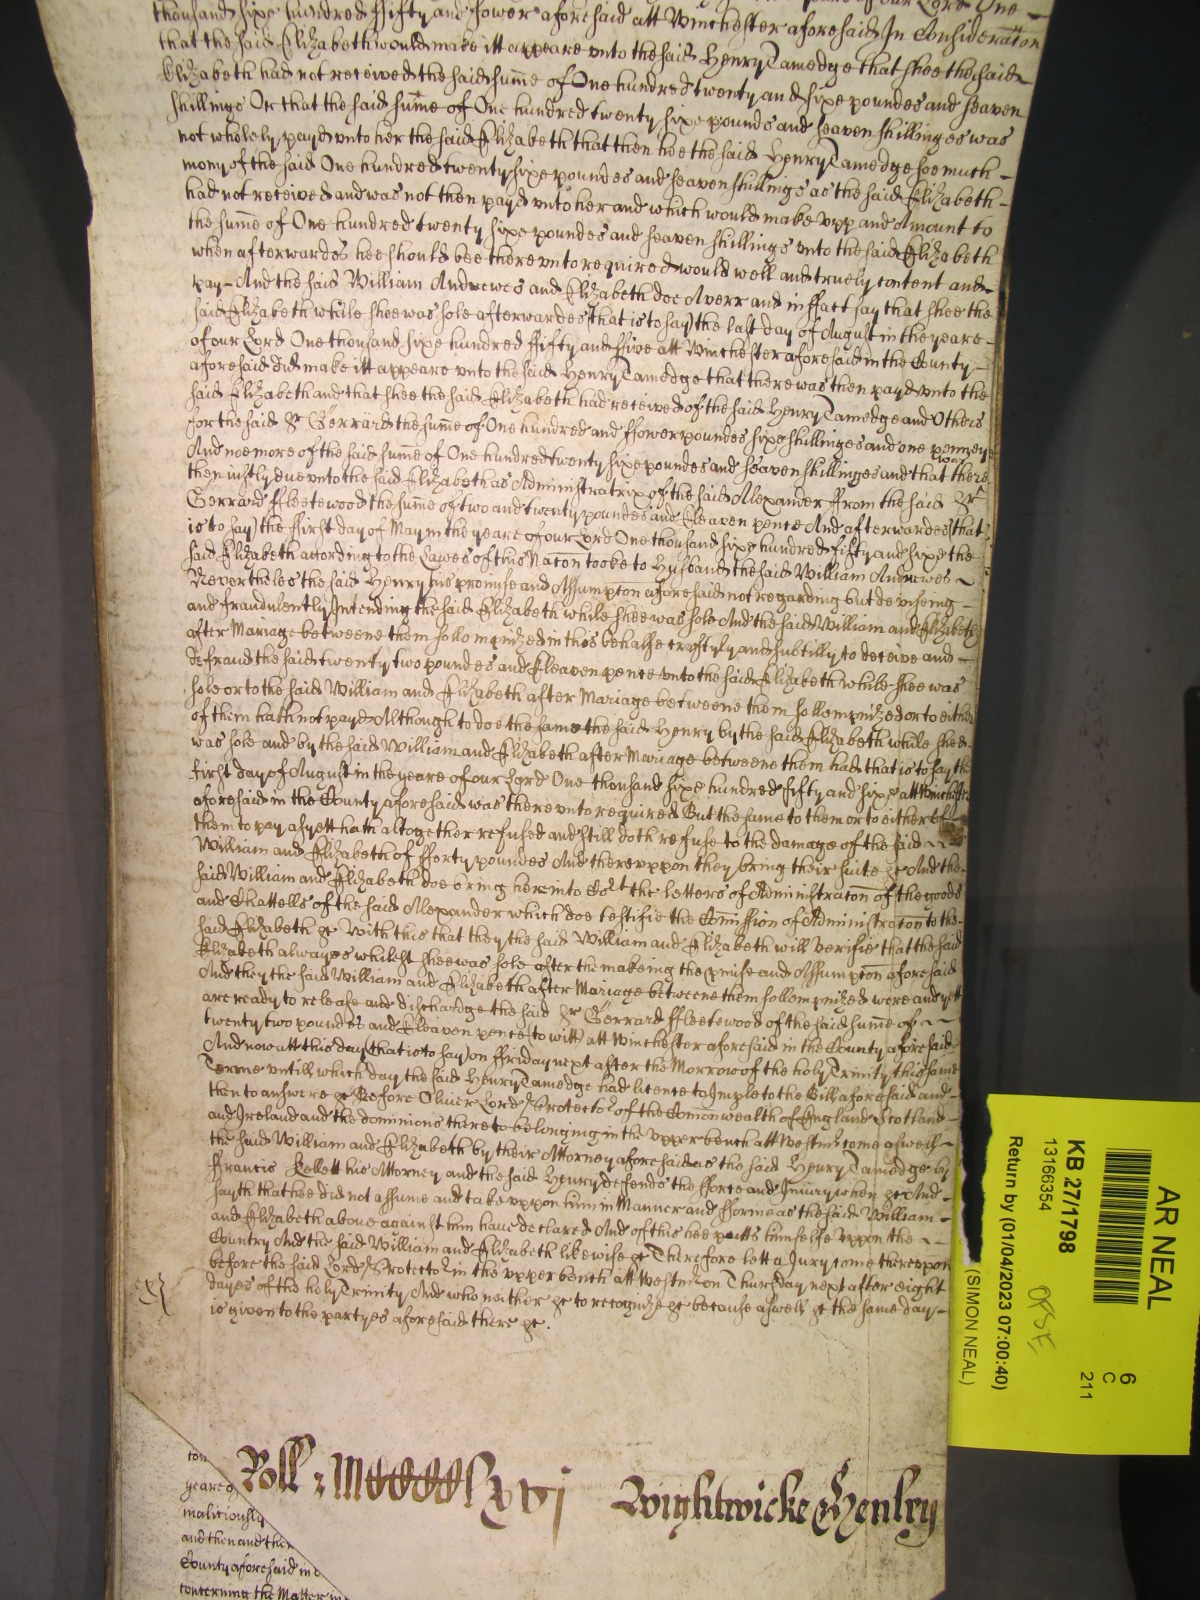 thousand sixe hundred ffifty and fower aforesaid att Winchester aforesaid In Consideracon
that the said Elizabeth would make itt appeare vnto the said Henry Tamedge that shee the said
Elizabeth had not received the said sume of One hundred twenty and sixe poundes and seaven
shillings Or that the said sume of One hundred twenty sixe pounds and seaven shillinges was
not wholely payd vnto her the said Elizabeth that then hee the said Henry Tamedge soe much
mony of the said One hundred twenty sixe poundes and seaven shillings as the said Elizabeth
had not received and was not then payd vnto her and which would make vpp and Amount to
the sume of One hundred twenty sixe poundes and seaven shillings vnto the said Elizabeth
when afterwardes hee should bee therevnto required would well and truely content and
pay And the said William Andrewes and Elizabeth doe Averr and in ffact say that shee the
said Elizabeth while shee was sole afterwardes (that is to say) the last day of August in the yeare
of our Lord One thousand sixe hundred ffifty and ffive att Winchester aforesaid in the County
aforesaid did make itt appeare vnto the said Henry Tamedge that there was then payd vnto the
said Elizabeth and that shee the said Elizabeth had received of the said Henry Tamedge and Others
for the said Sr Gerrard the sume of One hundred and ffower poundes sixe shillinges and one penney
And noe more of the said sume of One hundred twenty sixe poundes and seaven shillinges and that there was
then iustly due vnto the said Elizabeth as Administratrix of the said Alexander ffrom the said Sr
Gerrard ffleetewood the sume of two and twenty poundes and Eleaven pence And afterwardes (that
is to say) the ffirst day of May in the yeare of our Lord One thousand sixe hundred fifty and sixe the
said Elizabeth according to the Lawes of this Nacon tooke to Husband the said William Andrewes
Neverthelesse the said Henry his promise and Assumption aforesaid not regarding but deviseing
and fraudulently Intending the said Elizabeth while shee was sole And the said William and Elizabeth
after Mariage betweene them sollompnized in this behalfe craftyly and subtilly to deceive and
defraud the said twenty two poundes and Eleaven pence vnto the said Elizabeth while shee was
sole or to the said William and Elizabeth after Mariage betweene them sollompnized or to either
of them hath not payd Although to doe the same the said Henry by the said Elizabeth while shee
was sole and by the said William and Elizabeth after Mariage betweene them had that is to say the
first day of August in the yeare of our Lord One thousand sixe hundred fifty and sixe att Winchester
aforesaid in the County aforesaid was therevnto required But the same to them or to either of
them to pay as yett hath altogether refused and still doth refuse to the damage of the said
William and Elizabeth of fforty poundes And therevppon they bring their suite &c And the
said William and Elizabeth doe bring here into Cort the letters of Administracon of the goods
and Chattells of the said Alexander which doe testifie the Comission of Administracon to the
said Elizabeth &c With this that they the said William and Elizabeth will verifie that the said
Elizabeth alwayes whilest shee was sole after the makeing the pmise and Assumpcon aforesaid
And they the said William and Elizabeth after Mariage betweene them sollompnized were and yett
are ready to release and dischardge the said Sr Gerrard ffleetewood of the said sume of
twenty two poundes and Eleaven pence (to witt) att Winchester aforesaid in the County aforesaid
And now att this day (that is to say) on ffriday next after the Morrow of the holy Trinity this same
Terme vntill which day the said Henry Tamedge had licence to Imple to the Bill aforesaid and
then to answere &c Before Oliver Lord Protector of the Comonwealth of England Scotland
and Ireland and the dominions thereto belonging in the vpper bench att Westmr come aswell
the said William and Elizabeth by their Attorney aforesaid as the said Henry Tamedge by
ffrancis Kellett his Attorney and the said Henry defends the fforce and Iniury when &c And
sayth that hee did not assume and take vppon him in Manner and fforme as the said William
and Elizabeth above against him have declared And of this hee putts himselfe vppon the
Country And the said William and Elizabeth likewise &c Therefore lett a Jury come therevpon
before the said Lord Protector in the vpper bench att Westmr on Thursday next after eight
dayes of the holy Trinity And who neither &c to recognize &c because aswell &c the same day
is given to the partyes aforesaid there &c.
Roll: Wightwicke & Henley
yeare
maliciously
and then and there
County aforesaid in
concerning the Matter
AR NEAL
6
C
211
KB 27/1798
13166354
Return by (01/04/2023 07:00:40)
(SIMON NEAL)